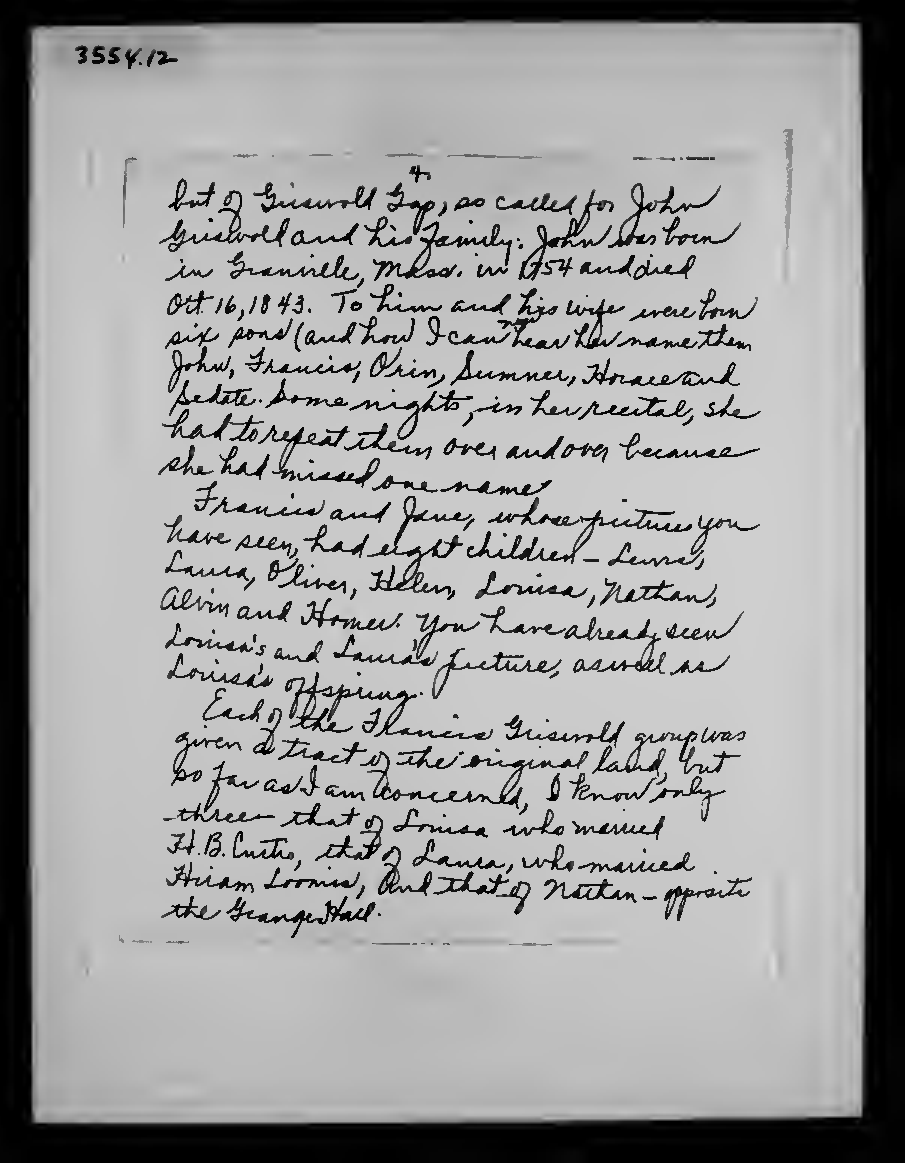 3554.12
4.
but of Griswold Gap, so called for John
Griswold and his family. John was born
in Granville, Mass. in 1754 and died
Oct. 16, 1843. To him and his wife were born
six sons (and how I can hear her name them
John, Francis, Orin, Sumner, Horace and
Sedate. Some nights, in her recital, she
had to repeat them over and over because
she had missed one name
Francis and Jane, whose pictures you
have seen, had eight children – Lewis,
Laura, Oliver, Helen, Louisa, Nathan,
Alvin and Homer. You have already seen
Louisa's and Laura's picture, as well as
Louisa's offspring.
Each of the Francis Griswold group was
given a tract of the original land, but
so far as I am concerned, I know only
three – that of Louisa who married
H. B. Curtis, that of Laura, who married
Hiram Loomis, and that of Nathan – opposite
the Grange Hall.